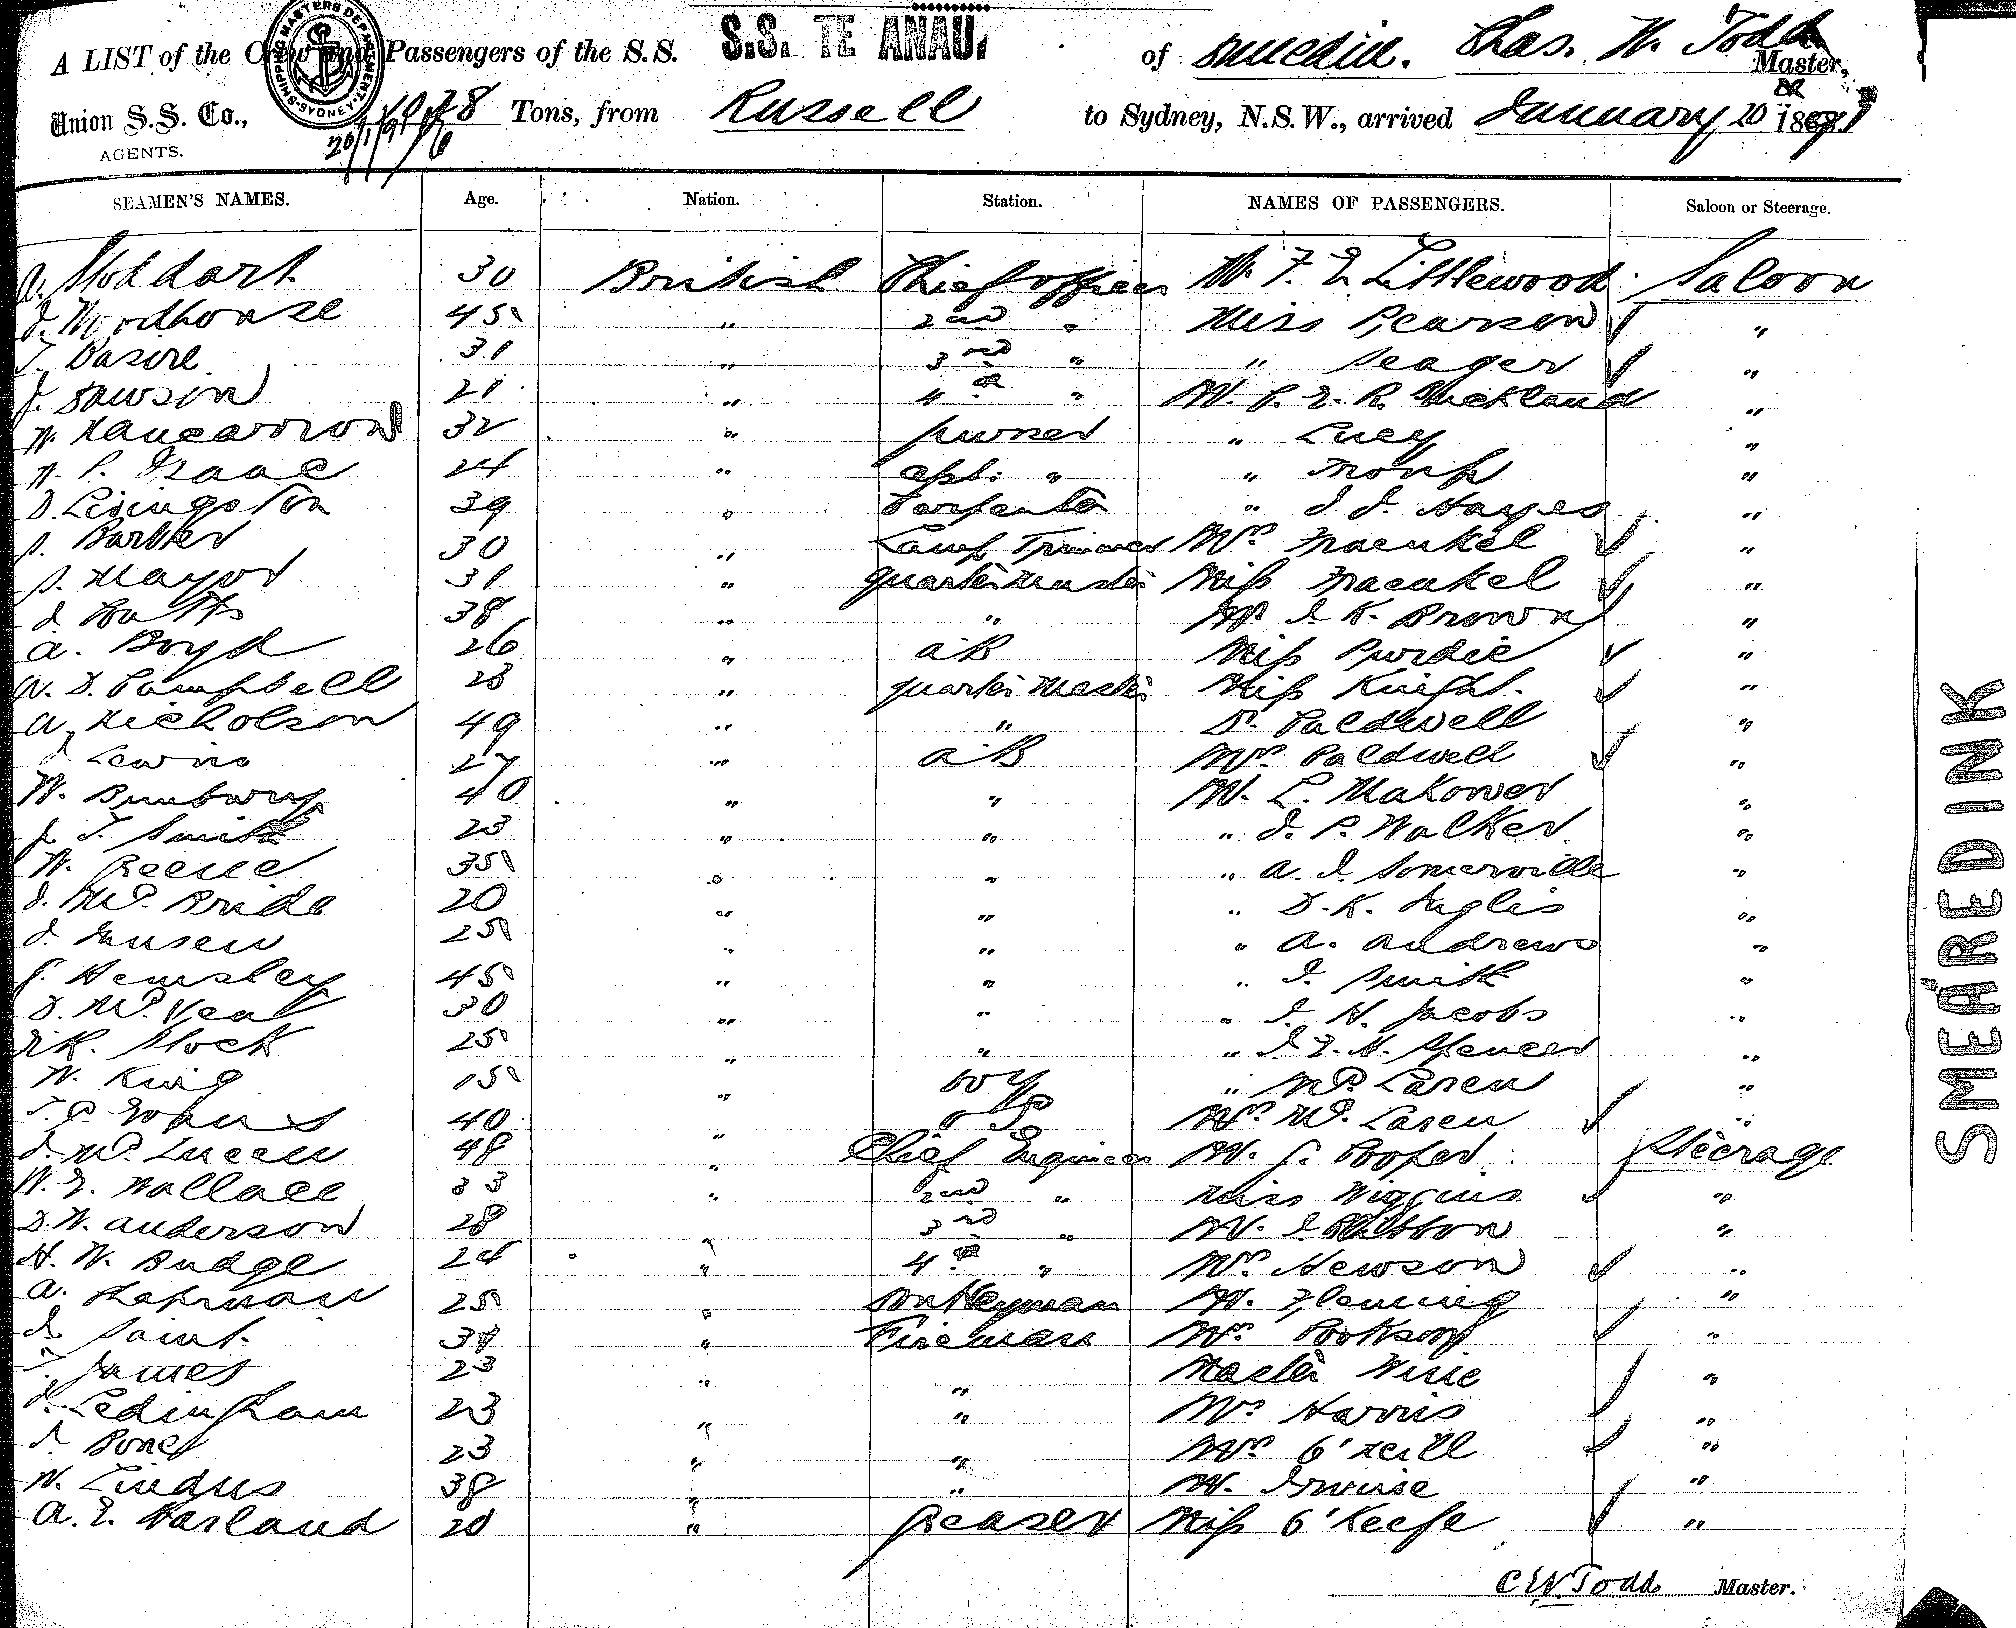 A LIST of the Crew and Passengers of the S.S. S.S. TE ANAU. of Dunedin. Chas. W. Todd Master,
SHIPPING MASTERS DEPARTMENT SYDNEY
Union S.S. Co., 1028 Tons, from Russell to Sydney, N.S.W., arrived January 20 1891
AGENTS. 20/1/91
SEAMEN'S NAMES. Age. Nation. Station. NAMES OF PASSENGERS. Saloon or Steerage.
A. Stoddart 30 British Chief officer Mr. F. E Littlewood Saloon
J. Woodhouse 45 " 2nd " Miss Pearson "
T. Basire 31 " 3rd " " Seager "
J. Dawson 21 " 4th " M. P. E. R. "
W. 32 " purser " Lucy "
W. P. Isaac 24 " asst. " " "
D. Livingston 39 " Carpenter " J. J. Hayes "
S. Barber 30 " Lamp Trimmer Mrs Fraenkel "
S. Mayor 31 " Quarter Master Miss Fraenkel "
J. Watts 38 " " Mr J K. Brown "
A. Boyd 26 " AB Miss Purdie "
A. D. Campbell 23 " Quarter Master Miss Knight. "
A. Nicholson 49 " " Dr. Caldwell "
J. Lewins 27 " AB Mrs Caldwell "
W. Bunbury 40 " " Mr. L. Makower "
J. T. Smith 23 " " " J. P. Walker "
W. Reeve 35 " " " A. J. Somerville "
J. McBride 20 " " " D. K. Inglis "
J. 25 " " " A. Andrews "
C. Hemsley 45 " " " J. Smith "
D. 30 " " " J. H. Jacobs "
R. Stock 25 " " " J. E. H. Spencer "
W. King 15 " boy " McLaren "
40 " Mrs McLaren "
J. 48 " Chief Engineer Mr. C. Cooper Steerage
W. E. Wallace 33 " 2nd " Miss Wiggins "
D. W. Anderson 28 " 3rd " Mr. J "
H. W. Budge 24 " 4th " Mrs Hewson "
A. 25 " Donkeyman Mr. Fleming "
J. Saint. 38 " Fireman Mrs Cookson "
T. James 23 " " Master "
J. Ledingham 23 " " Mrs Harris "
J. 23 " " Mrs O'Neill "
W. Lindus 38 " " Mr. "
A. E. Harland 20 " greaser Miss O'Keefe "
C W Todd Master.
SMEARED INK